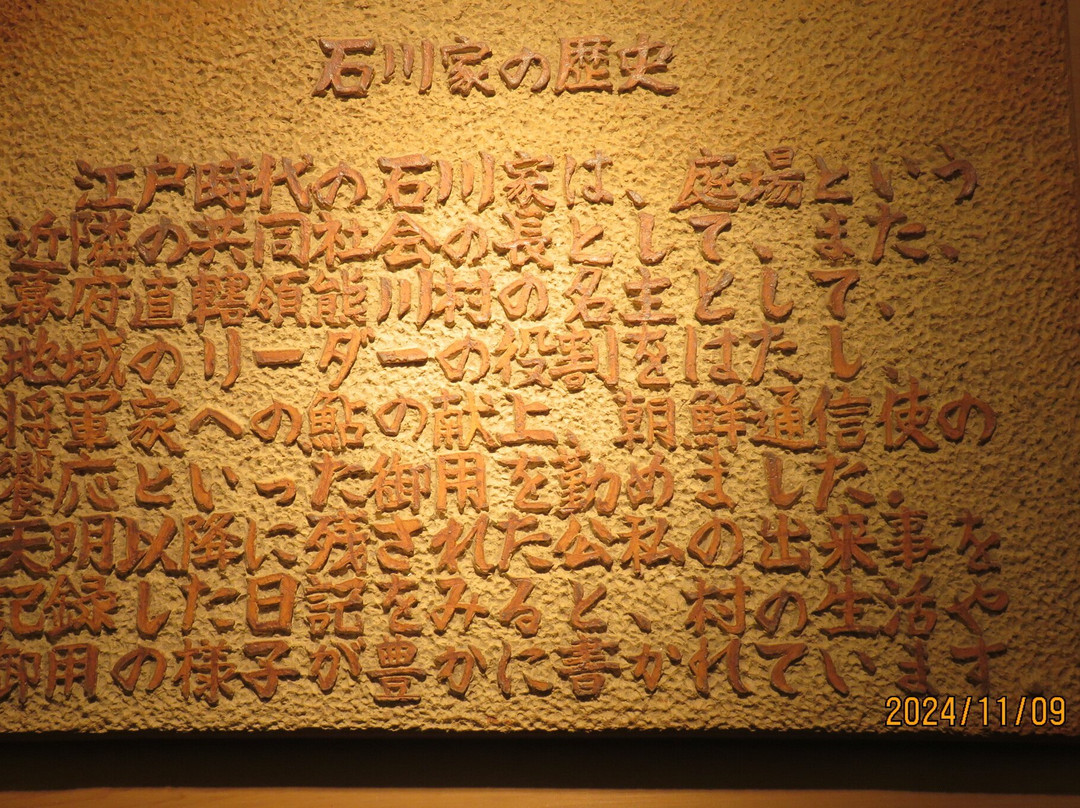 石川家の歴史
江戸時代の石川家は、庭場という
近隣の共同社会の長として、また、
幕府直轄領能川村の名主として、
地域のリーダーの役割をはたし
将軍家への鮎の献上、朝鮮通信使の
饗応といった御用を勤めました。
天明以降に残された公私の出来事を
記録した日記をみると、村の生活や
御用の様子が豊かに書かれています
2024/11/09